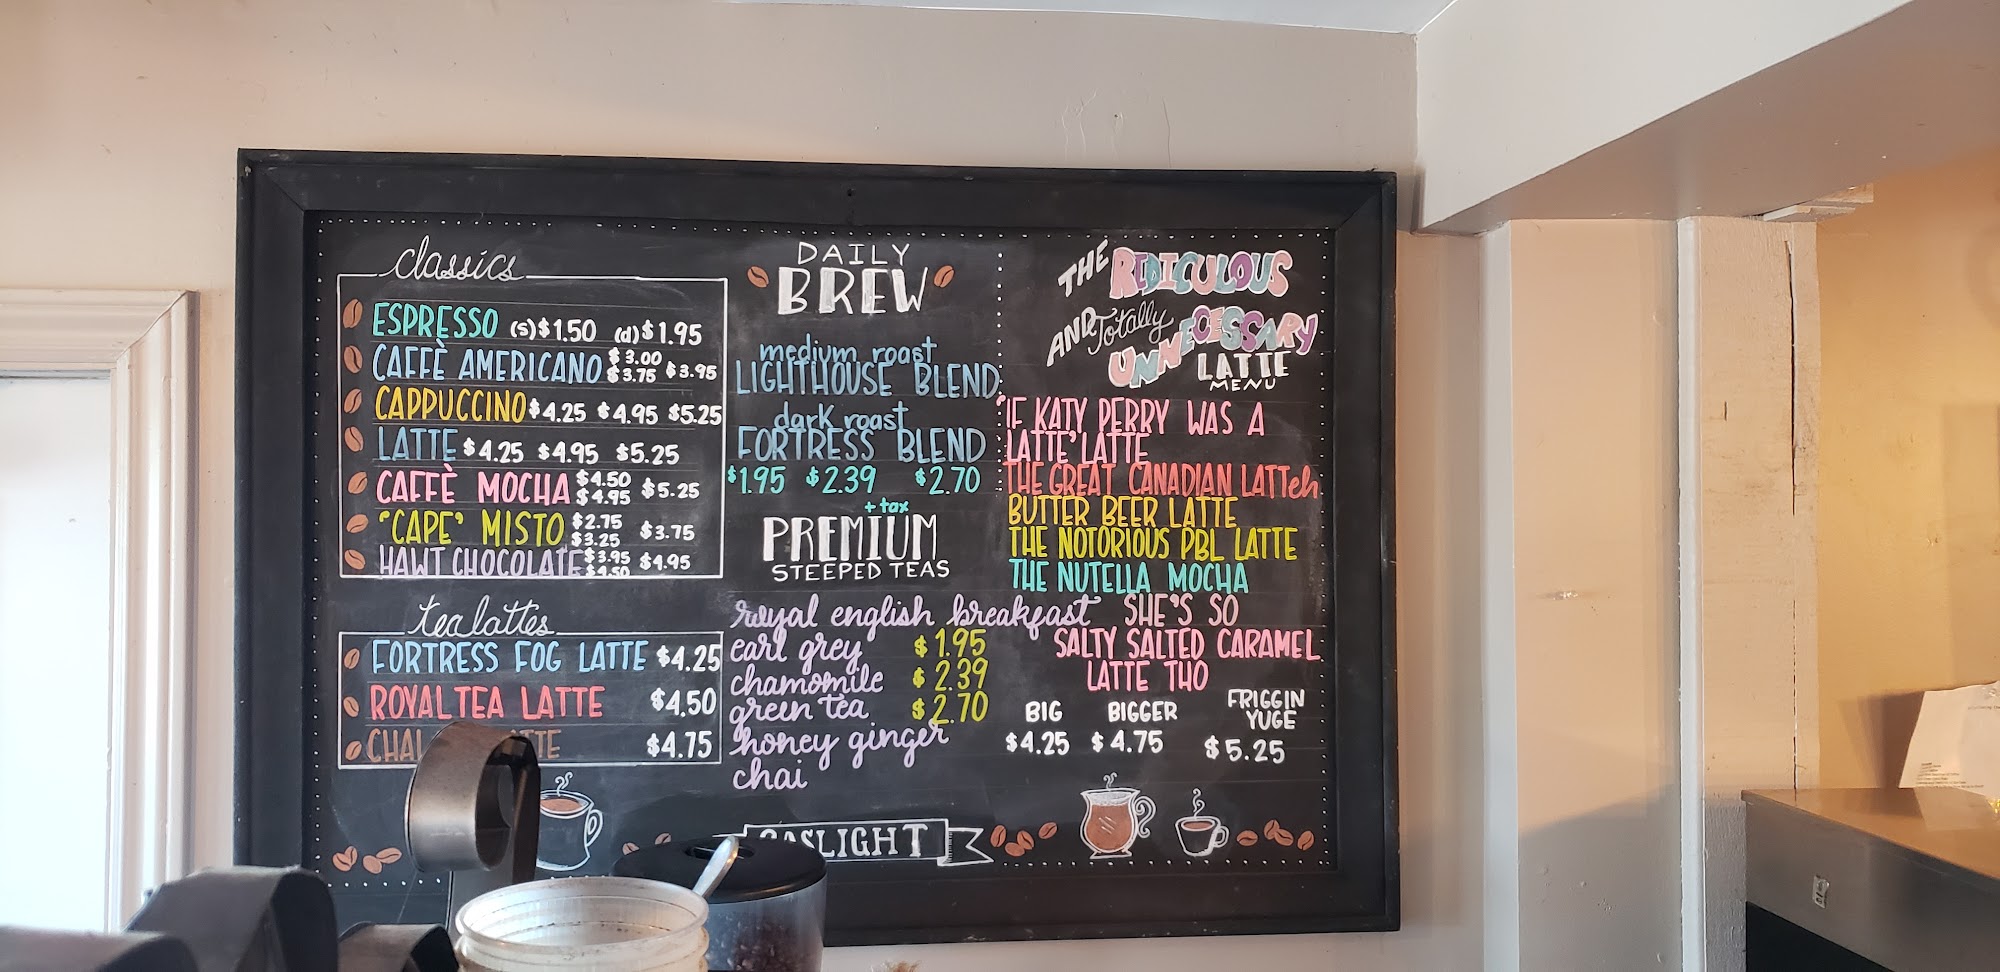 classics
ESPRESSO (s)$1.50 (d)$1.95
CAFFÈ AMERICANO $3.00 $3.75 $3.95
CAPPUCCINO $4.25 $4.95 $5.25
LATTE $4.25 $4.95 $5.25
CAFFÈ MOCHA $4.50 $4.95 $5.25
"CAPE" MISTO $2.75 $3.25 $3.75
HAWT CHOCOLATE $3.95 $4.50 $4.95
tea lattes
FORTRESS FOG LATTE $4.25
ROYAL TEA LATTE $4.50
CHAI $4.75
DAILY
BREW
medium roast
LIGHTHOUSE BLEND
dark roast
FORTRESS BLEND
$1.95 $2.39 $2.70
+ tax
PREMIUM
STEEPED TEAS
royal english breakfast
earl grey $1.95
chamomile $2.39
green tea $2.70
honey ginger
chai
GASLIGHT
THE RIDICULOUS
AND Totally
UNNECESSARY
LATTE
MENU
"IF KATY PERRY WAS A
LATTE" LATTE
THE GREAT CANADIAN LATTeh
BUTTER BEER LATTE
THE NOTORIOUS PBL LATTE
THE NUTELLA MOCHA
SHE'S SO
SALTY SALTED CARAMEL
LATTE THO
BIG BIGGER FRIGGIN YUGE
$4.25 $4.75 $5.25